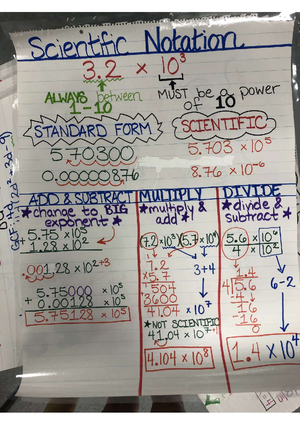 Scientific Notation
3.2 × 10³
ALWAYS between
1-10
MUST be a power
of 10
STANDARD FORM
SCIENTIFIC
570300
5.703 × 10⁵
0.00000876
8.76 × 10⁻⁶
ADD & SUBTRACT
*change to BIG
exponent*
5.75 × 10⁵
+ 1.28 × 10²
.001.28 × 10²⁺³
5.75000 × 10⁵
+ 0.00128 × 10⁵
5.75128 × 10⁵
MULTIPLY
*multiply &
add*
(7.2×10³)(5.7×10⁴)
7.2
× 5.7
504
3600
41.04
3+4
× 10⁷
*NOT SCIENTIFIC
41.04 × 10⁷⁺¹
4.104 × 10⁸
DIVIDE
*divide &
subtract*
5.6 × 10⁶
4 × 10²
1.4
4 5.6
-4
16
-16
0
6-2
1.4 × 10⁴